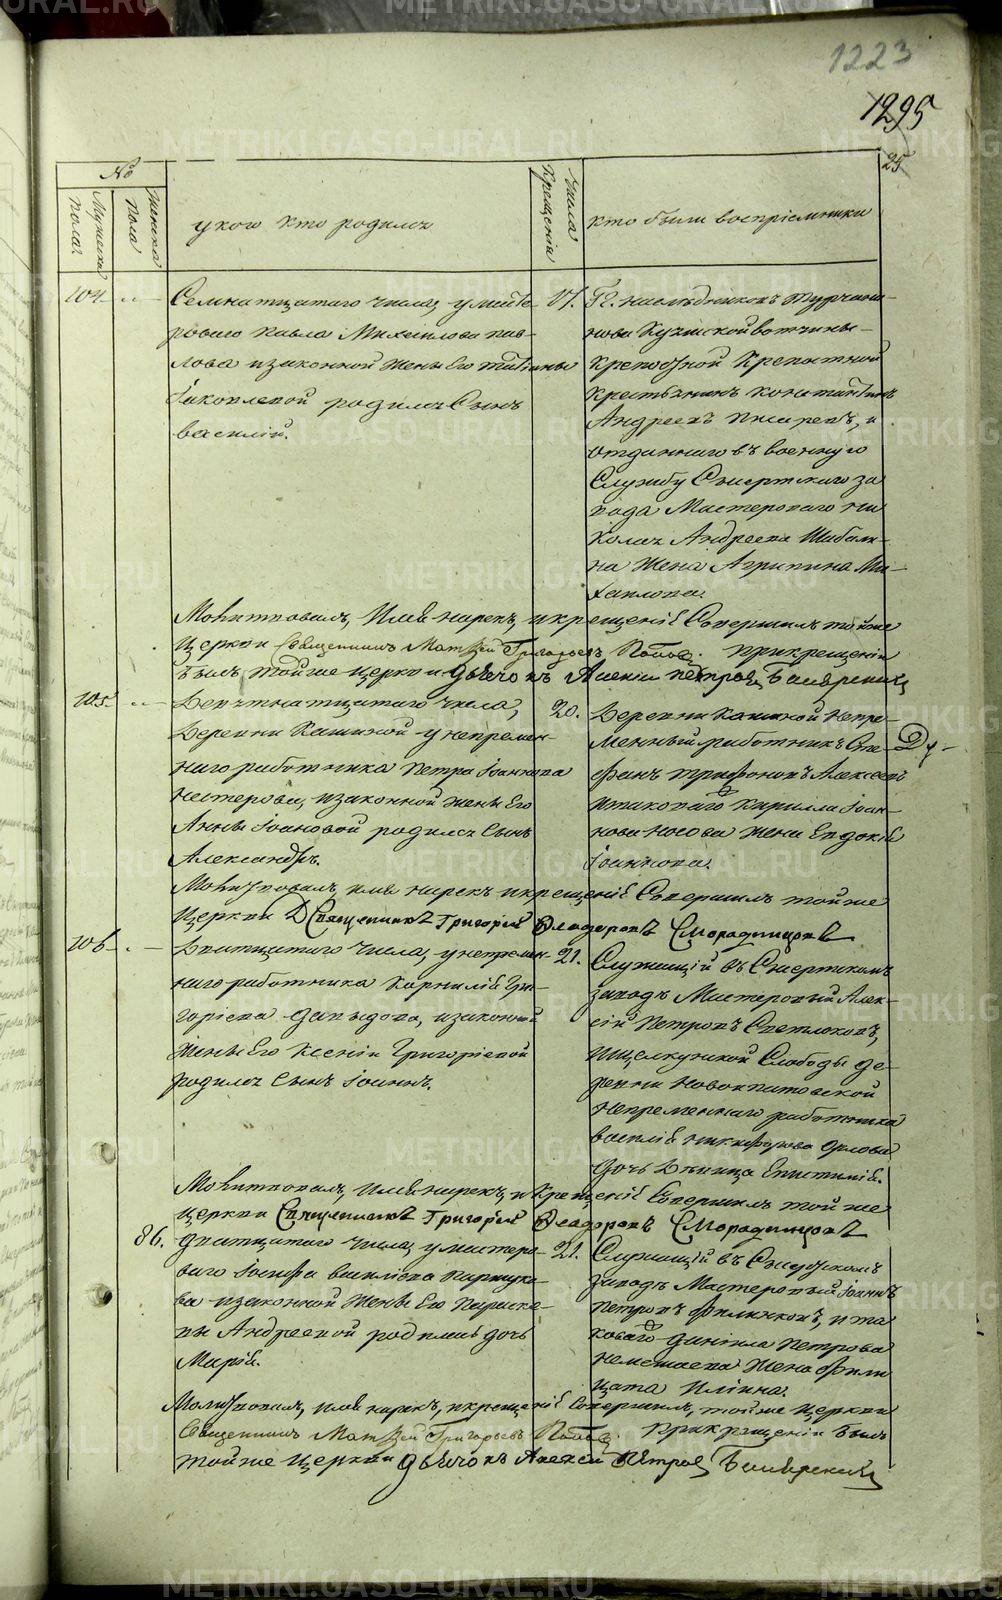 1223
1295
25
№
Мужеска пола
женска пола
у кого кто родился
Числа Крещенiя
кто были воспрiемники
104. 17.
Семнатцатаго числа, у масте-
роваго Павла Михайлова Пав-
лова и законной жены его Татiяны
Iаковлевой родился сынъ
Василiй.
Гг. наследниковъ Турчани-
нова
крестьянинъ Константинъ
Андреевъ Писаревъ, и
отданнаго въ военную
службу Сысертскаго за-
вода Мастероваго Ни-
колая Андреева Шабали-
на жена Агрипина Ми-
хаилова.
Молитвовалъ, имя нарекъ, и крещенiе совершилъ той же
церкви Священникъ Матвей Григорьевъ Поповъ. При крещенiи
былъ той же церкви дьячокъ Алексей Петровъ
105. 20.
Девятнатцатаго числа,
деревни Кашиной у непремен-
наго работника Петра Iоаннова
Нестерова, и законной жены его
Анны Iоановой родился сынъ
Александръ.
Деревни Кашиной непре-
менный работникъ Сте-
фанъ Трифоновъ Алексеевъ
и таковаго Кирилла Iоан-
нова Носова жена Евдокiя
Iоаннова.
Молитвовалъ, имя нарекъ и крещенiе совершилъ той же
церкви Священникъ Григорiй Феодоровъ Смородинцовъ
106. 21.
Дватцатаго числа, у непремен-
наго работника Корнилiя Гри-
горiева Давыдова, и законной
жены его Ксенiи Григорiевой
родился сынъ Iоаннъ.
Служащiй въ Сысертскомъ
заводе Мастеровый Алек-
сей Петровъ Светлоковъ,
и Щелкунской Слободы де-
ревни Новоипатовской
непременнаго работника
Василiя Никифорова Орлова
дочь девица Епистимiя.
Молитвовалъ, имя нарекъ, и крещенiе совершилъ той же
церкви Священникъ Григорiй Феодоровъ Смородинцовъ
86. 21.
Дватцатаго числа, у мастеро-
ваго Iосифа Василiева
ва и законной жены его Параске-
вы Андреевой родилась дочь
Марiя.
Служащiй въ Сысертскомъ
заводе Мастеровый Iоаннъ
Петровъ Филинковъ, и та-
коваго Данiила Петрова
жена Фили-
цата Илiина.
Молитвовалъ, имя нарекъ, и крещенiе совершилъ, той же церкви
Священникъ Матвей Григорьевъ Поповъ. При крещенiи былъ
той же церкви дьячокъ Алексей Петровъ
METRIKI.GASO-URAL.RU